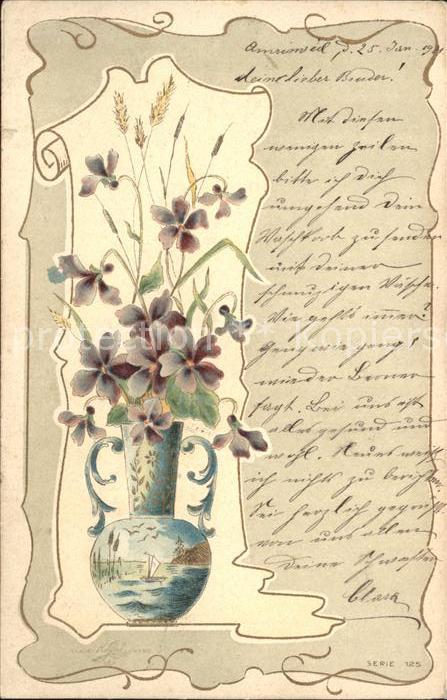 Amrisweil, d. 25. Jan. 1901
Mein lieber Bruder!
Mit diesen
wenigen Zeilen
bitte ich Dich
umgehend Dein
Waschkorb zu senden
mit deiner
schmuzigen Wäsche.
Wie gehts immer?
wie der Berner
sagt. Bei uns ist
alles gesund und
wohl. Neues weiß
ich nichts zu berichten
Sei herzlich gegrüßt
von uns allen
Deine Schwester
Clara
SERIE 125